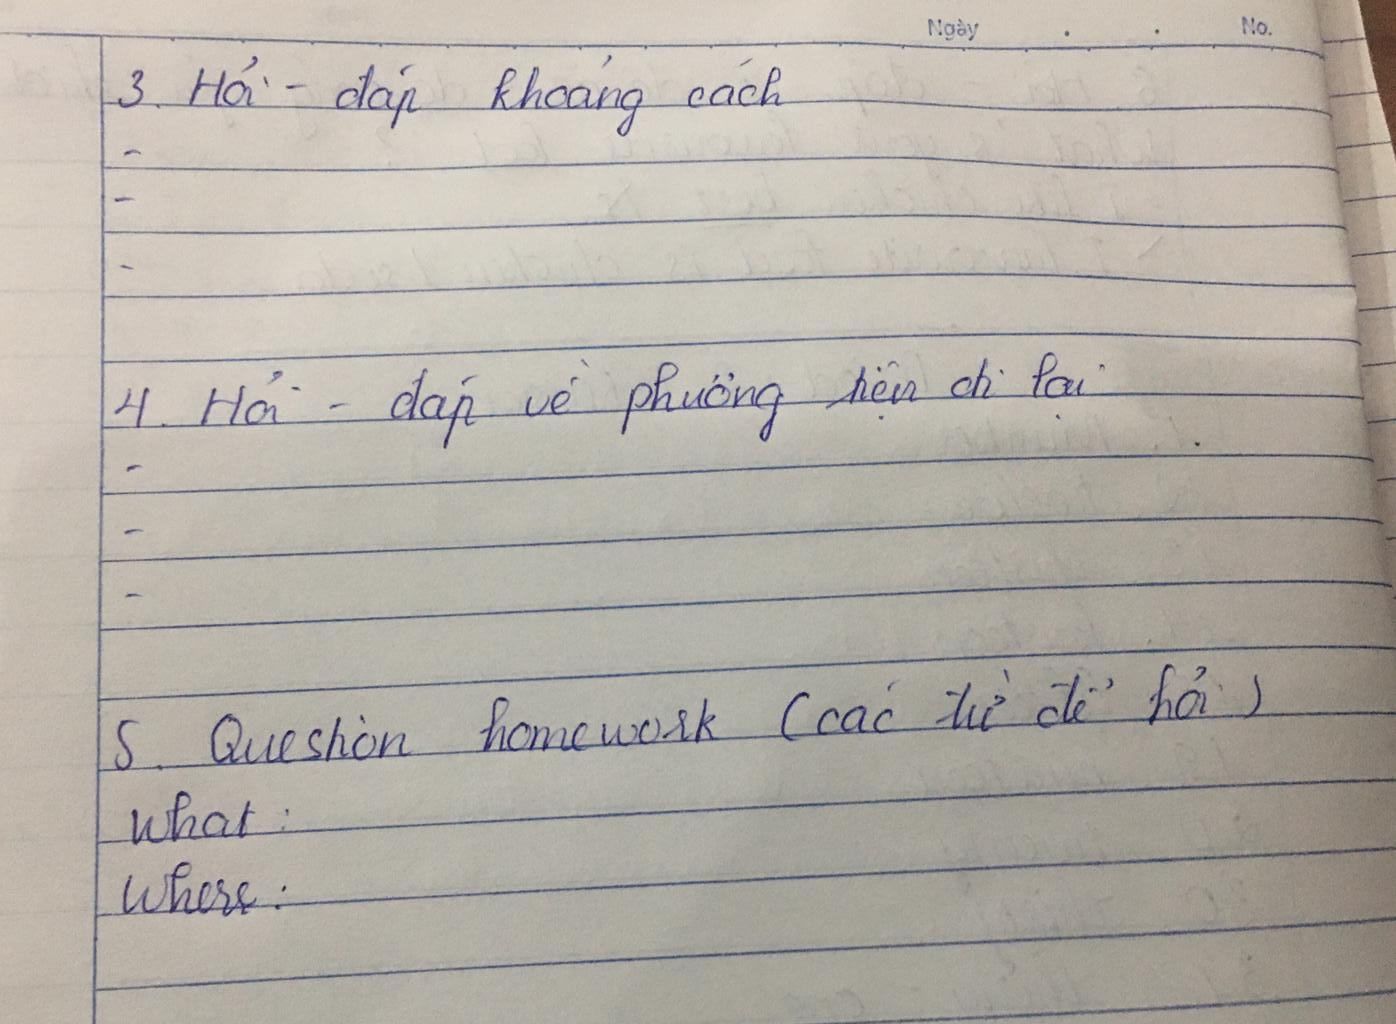 Ngày . . No.
3. Hỏi - đáp khoảng cách
-
-
-
4. Hỏi - đáp về phương tiện đi lại
-
-
-
5. Question homework (các từ để hỏi)
What:
Where: